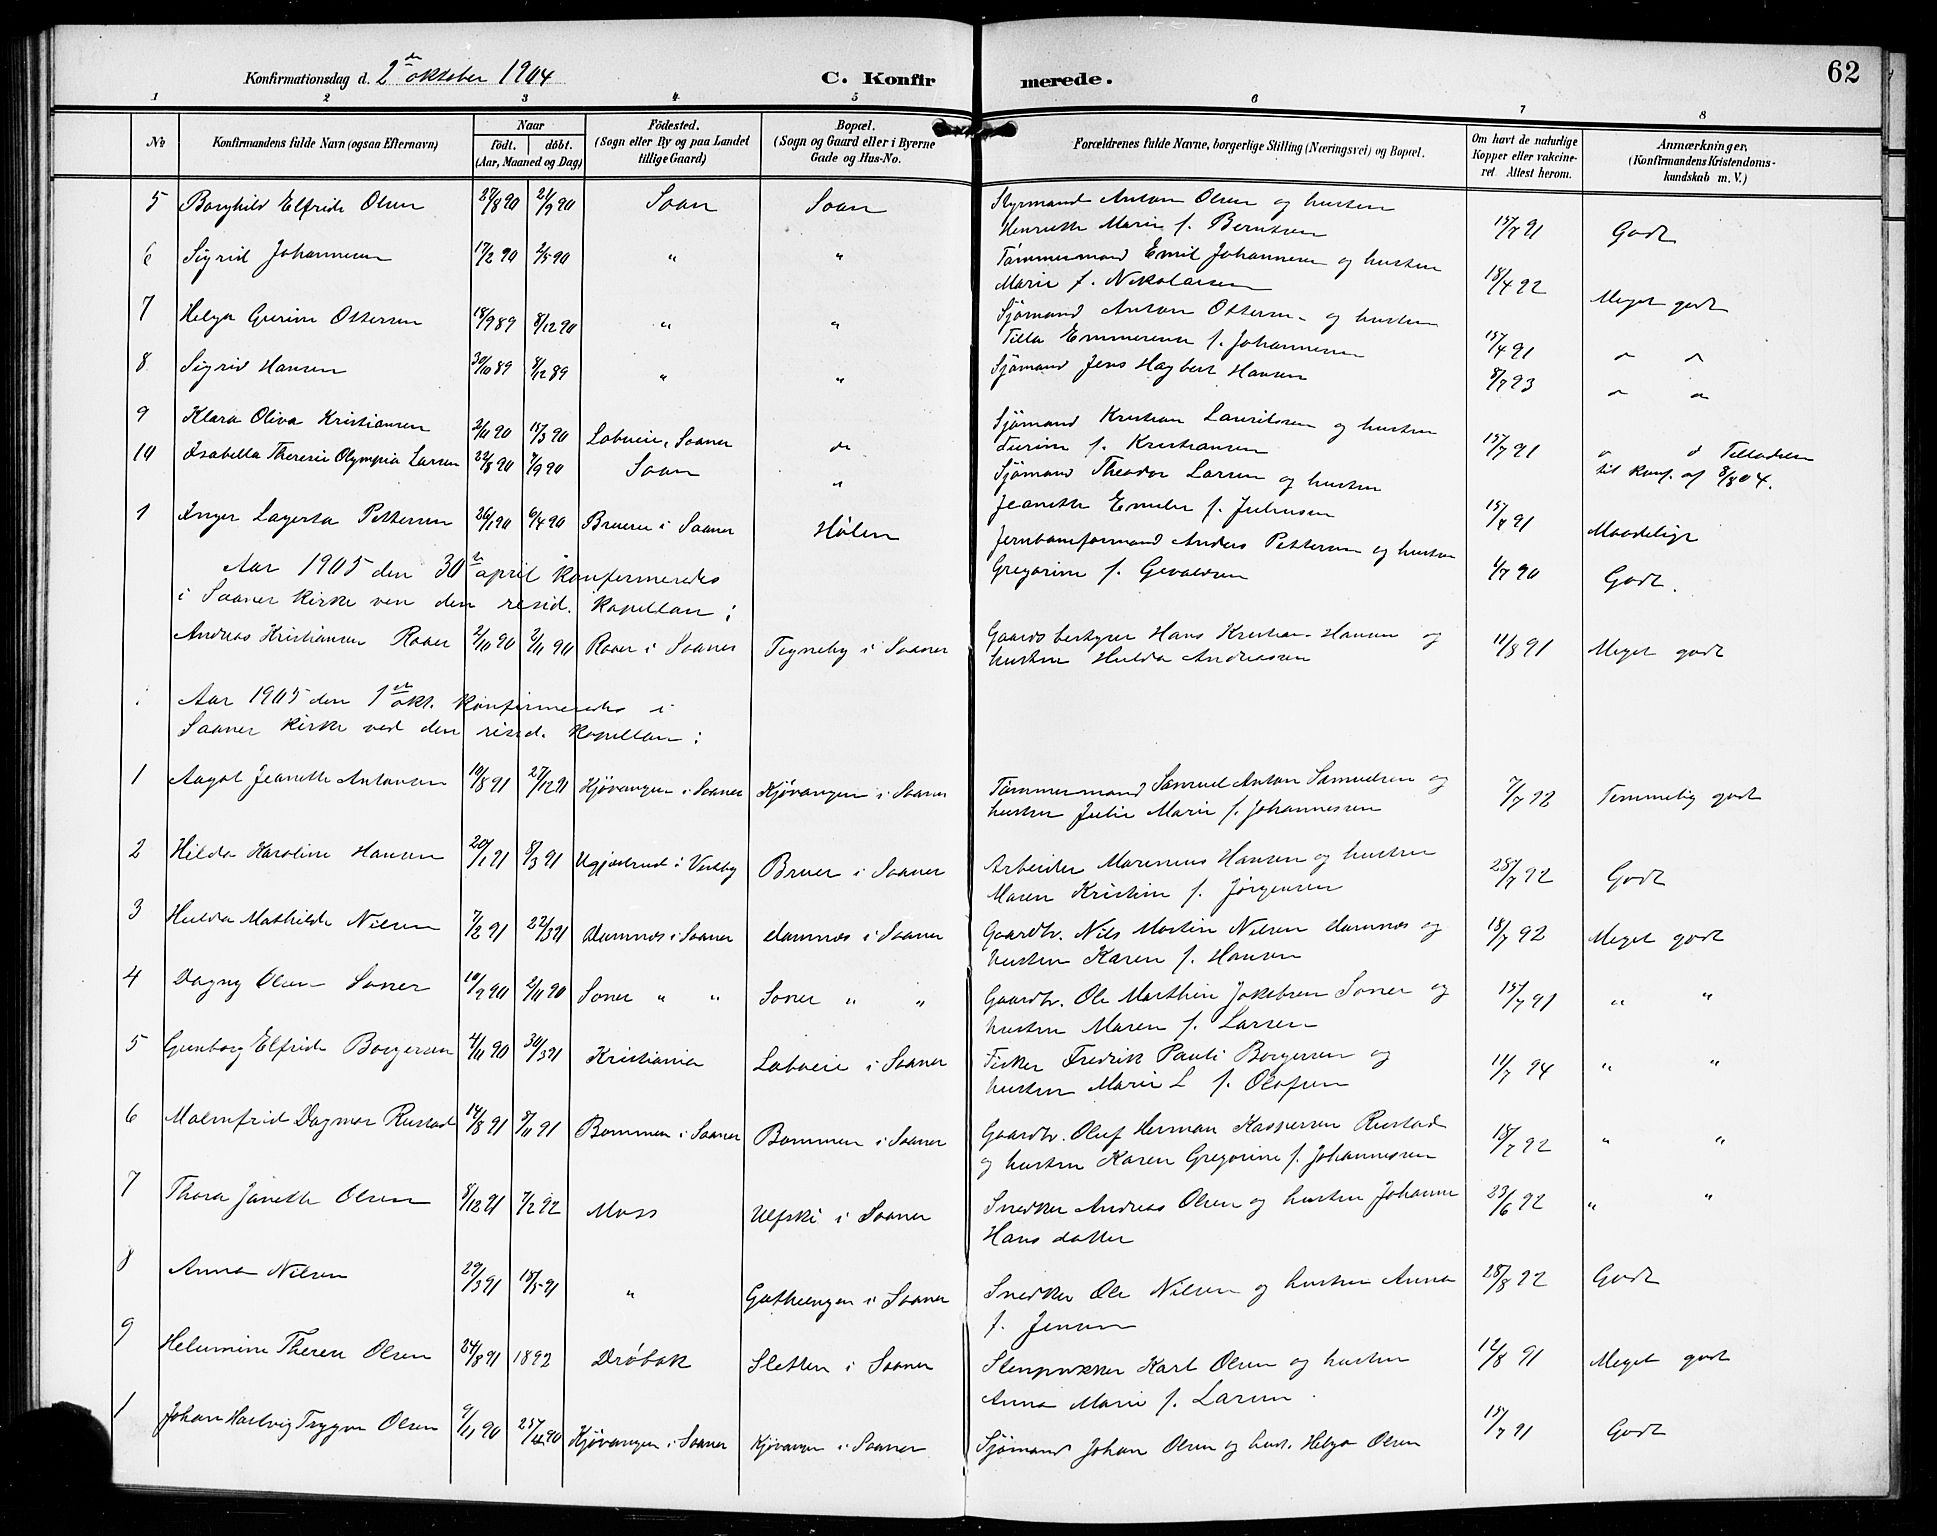 Konfirmationsdag d. 2den oktober 1904
C. Konfirmerede.
62
1 2 3 4 5 6 7 8
No
Konfirmandens fulde Navn (ogsaa Efternavn)
Naar
født. døbt.
(Aar, Maaned og Dag)
Fødested.
(Sogn eller By og paa Landet
tillige Gaard)
Bopæl.
(Sogn og Gaard eller i Byerne
Gade og Hus-No.
Forældrenes fulde Navne, borgerlige Stilling (Næringsvei) og Bopæl.
Om havt de naturlige
Kopper eller vakcine-
ret Attest herom.
Anmærkninger,
(Konfirmandens Kristendoms-
kundskab m. V.)
5 Borghild Elfride Olsen 27/8 90 21/9 90 Soon Soon Styrmand Anton Olsen og hustru
Henriette Marie f. Berntsen 15/7 91 Godt
6 Sigrid Johannesen 17/2 90 2/5 90 " " Tømmermand Emil Johannesen og hustru
Marie f. Nikolaisen 18/4 92 Meget godt
7 Helga Gurine Ottersen 18/9 89 8/12 90 " " Sjømand Anton Ottersen og hustru
Tilla Emmerense f. Johannesen 15/4 91 " "
8 Sigrid Hansen 30/10 89 8/12 89 " " Sjømand Jens Hagbert Hansen 8/7 93 " "
9 Klara Oliva Kristiansen 2/11 90 15/3 90 Labeie, Saaner " Sjømand Kristian Lauritsen og hustru
f. Kristiansen 15/7 91 " " Tilladelse
til konf. af 8/8 04.
10 Isabella Theresie Olympia Larsen 22/8 90 7/9 90 Soon " Sjømand Theodor Larsen og hustru
Jeanette Emilie f. Juliussen 15/7 91 Maadelige
1 Inger Lagerta Pettersen 26/1 90 6/4 90 Brueie i Saaner Hølen Jernbaneformand Anders Pettersen og hustru
Gregorine f. 1/7 90 Godt.
Aar 1905 den 30te april konfirmeredes
i Saaner kirke ven den resid. kapellan:
Andreas Kristiansen Roer 2/10 90 2/11 90 Roer i Saaner Tegneby i Saaner Gaardsbestyrer Hans Kristian Hansen og
hustru Hulda Andreassen 11/8 91 Meget godt
Aar 1905 den 1ste okt. konfirmeredes i
Saaner kirke ved den resid. kapellan:
1 Aagot Jeanette Antonsen 10/8 91 27/12 91 Kjøvangen i Saaner Kjøvangen i Saaner Tømmermand Samuel Anton Samuelsen og
hustru Julie Marie f. Johannessen 7/7 92 Temmelig godt
2 Hilda Karoline Hansen 20/1 91 8/3 91 Ugjestrud i Vestby Bruer i Saaner Arbeider Marenius Hansen og hustru
Maren Kristine f. Jørgensen 28/7 92 Godt
3 Hulda Mathilde Nilsen 7/2 91 22/3 91 Damnæs i Saaner damnæs i Saaner Gaardbr. Nils Martin Nilsen damnæs og
hustru Karen f. Hansen 18/7 92 Meget godt
4 Dagny Olsen Soner 10/9 90 2/11 90 Soner " " Soner " " Gaardbr. Ole Marthin Jakobsen Soner og
hustru Maren f. Larsen 15/7 91 " "
5 Gunborg Elfride Borgersen 4/11 90 30/3 91 Kristiania Labeie i Saaner Fisker Fredrik Pauli Borgersen og
hustru Marie L f. Olafsen 11/7 94 " "
6 Malmfrid Dagmar Rustad 14/8 91 8/11 91 Bommen i Saaner Bommen i Saaner Gaardbr. Oluf Herman Kaspersen Rustad
og hustru Karen Gregorine f. Johannesen 18/7 92 " "
7 Thora Janette Olsen 8/12 91 7/2 92 Moss Ulfski i Saaner Snedker Andreas Olsen og hustru Johanne
Hans datter 23/6 92 " "
8 Anna Nilsen 29/3 91 18/5 91 " i Saaner Snedker Ole Nilsen og hustru Anna
f. Jensen 28/8 92 Godt
9 Helmine Therese Olsen 24/8 91 1892 Drøbak Sletten i Saaner Stenpukker Karl Olsen og hustru
Anna Marie f. Larsen 12/8 91 Meget godt
1 Johan Hartvig Trygve Olsen 9/11 90 25/12 90 Kjøvangen i Saaner Kjøvangen i Saaner Sjømand Johan Olsen og hust. Helga Olsen 15/7 91 Godt